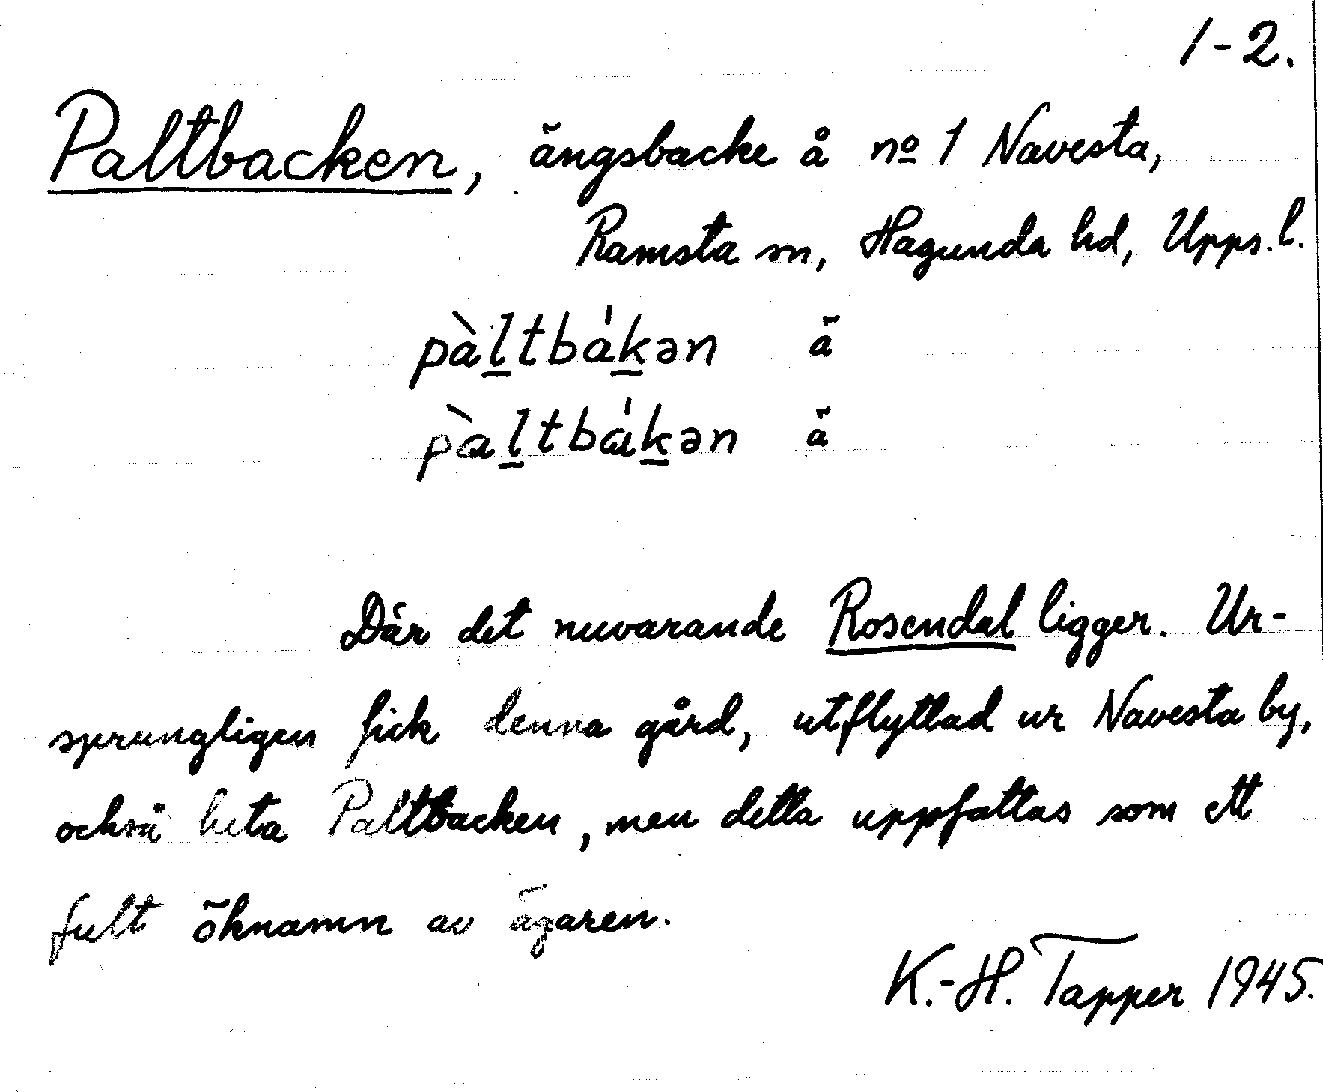 1-2.
Paltbacken, ängsbacke å nº 1 Navesta,
Ramsta sn, Hagunda hd, Upps. l.
pàltbákən ä
pàltbákən ä
Där det nuvarande Rosendal ligger. Ur-
sprungligen fick denna gård, utflyttad ur Navesta by,
också heta Paltbacken, men detta uppfattas som ett
fult öknamn av ägaren.
K.-H. Tapper 1945.